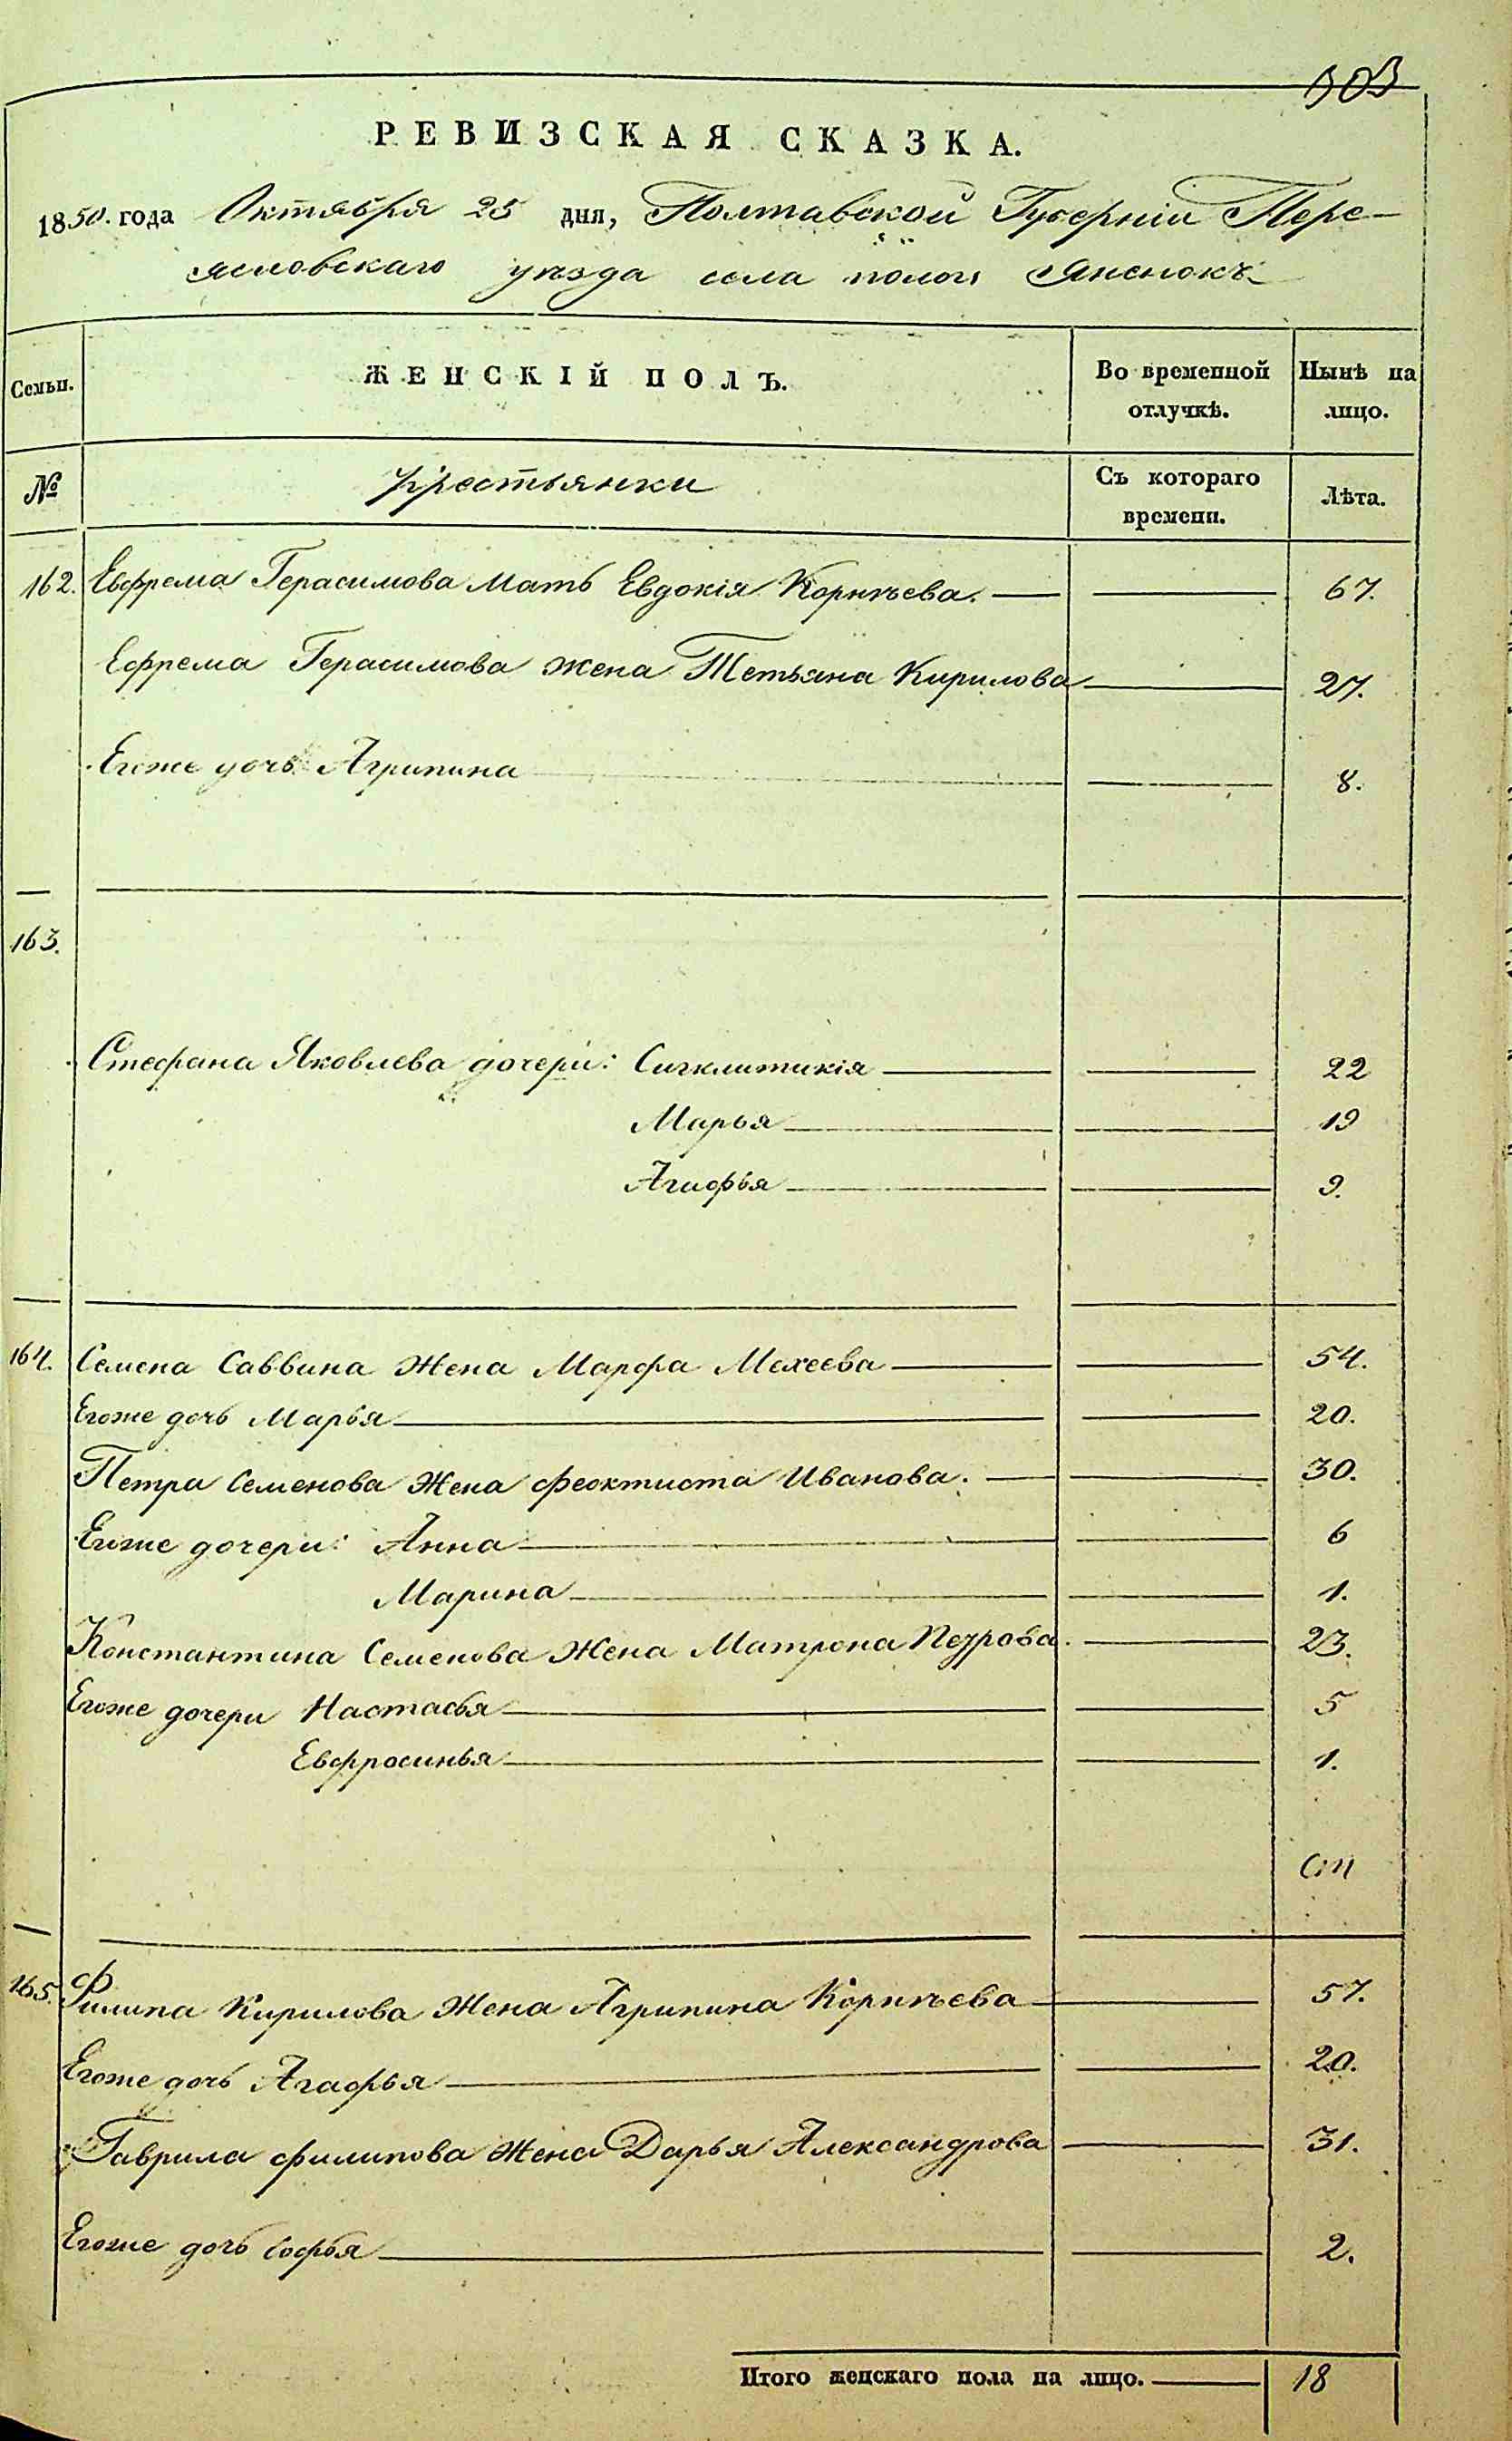 303
РЕВИЗСКАЯ СКАЗКА.
1850. года Октября 25 дня, Полтавской Губерніи Пере-
яловскаго уѣзда села пологи Яненокъ
Семьи. ЖЕНСКІЙ ПОЛЪ. Во временной отлучкѣ. Нынѣ на лицо.
№ Крестьянки Съ котораго времени. Лѣта.
162. Евфрема Герасимова Мать Евдокія Корнѣева. 67.
Ефрема Герасимова жена Тетьяна Кирилова 27.
Егоже дочь Агрипина 8.
163.
Стефана Яковлева дочери: Сигклитикія 22
Марья 19
Агафья 9.
164. Семена Саввина Жена Марфа Мехеева 54.
Егоже дочь Марья 20.
Петра Семенова Жена Феоктиста Иванова. 30.
Егоже дочери: Анна 6
Марина 1.
Константина Семенова Жена Матрона Петрова. 23.
Егоже дочери Настасья 5
Евфросинья 1.
165. Филипа Кирилова Жена Агрипина Корнѣева 57.
Егоже дочь Агафья 20.
Гаврила филипова Жена Дарья Александрова 31.
Егоже дочь Софья 2.
Итого женскаго пола на лицо. 18